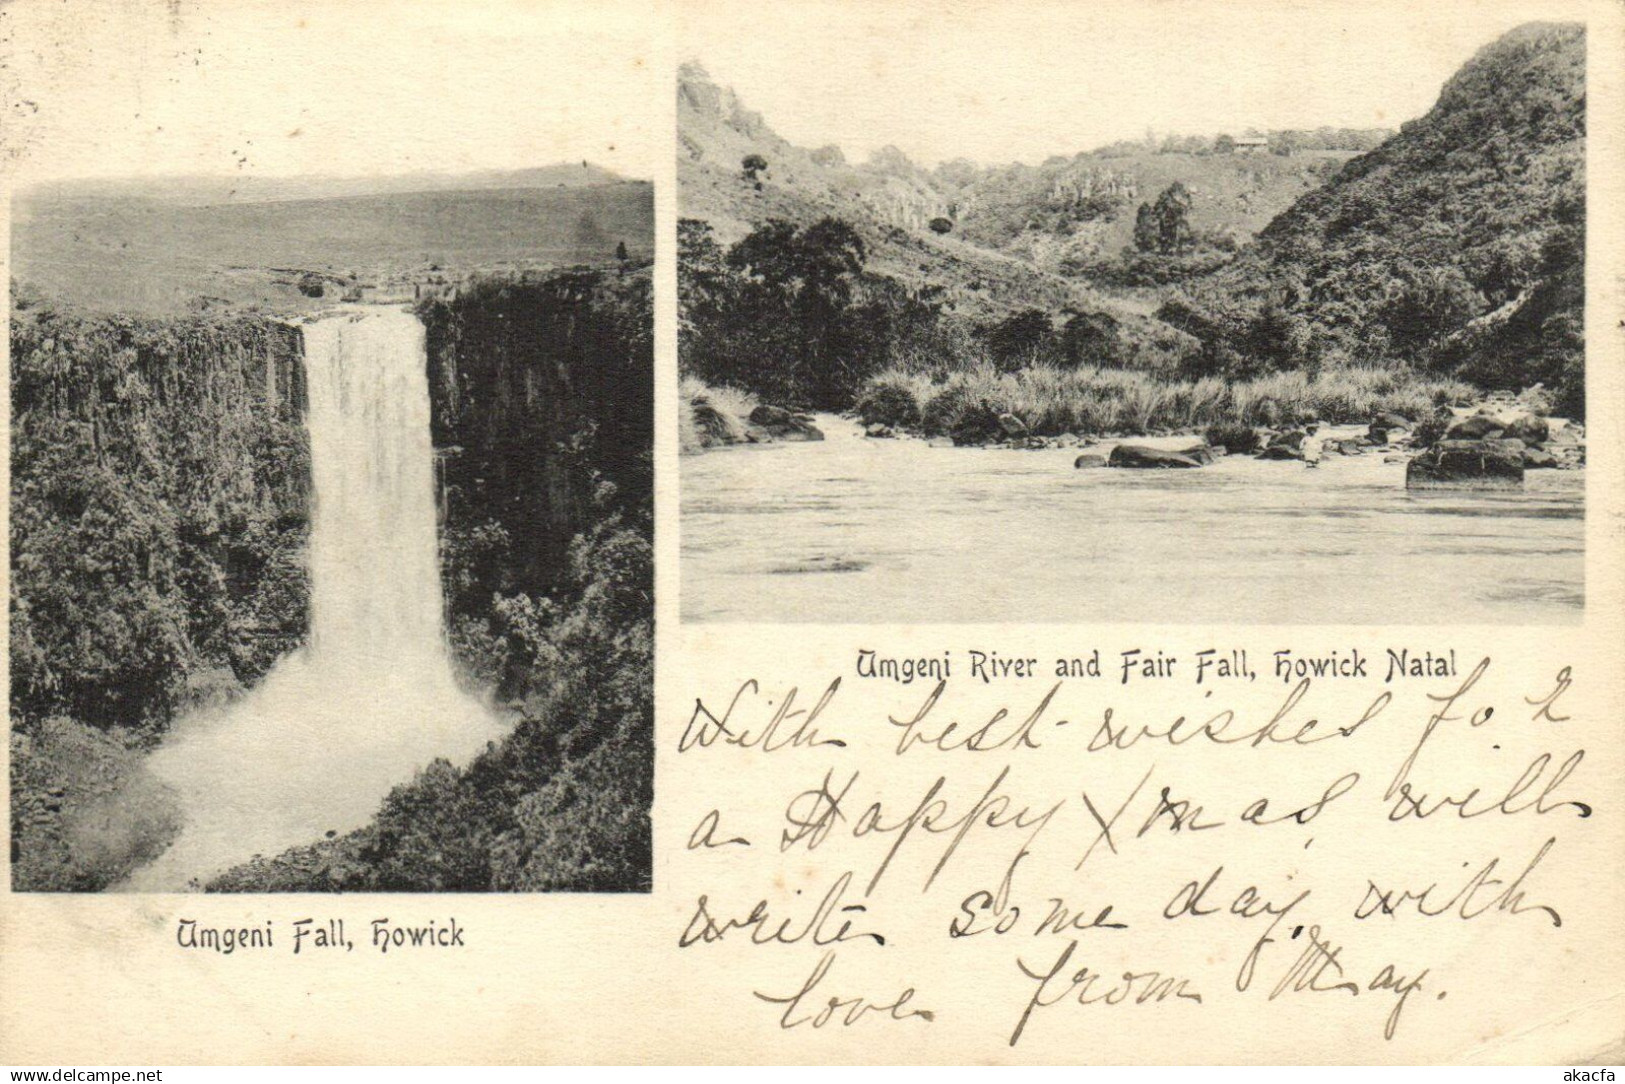 Umgeni Fall, Howick
Umgeni River and Fair Fall, Howick Natal
With best wishes for
a Happy Xmas, will
write some day, with
love from May.
www.delcampe.net
akacfa